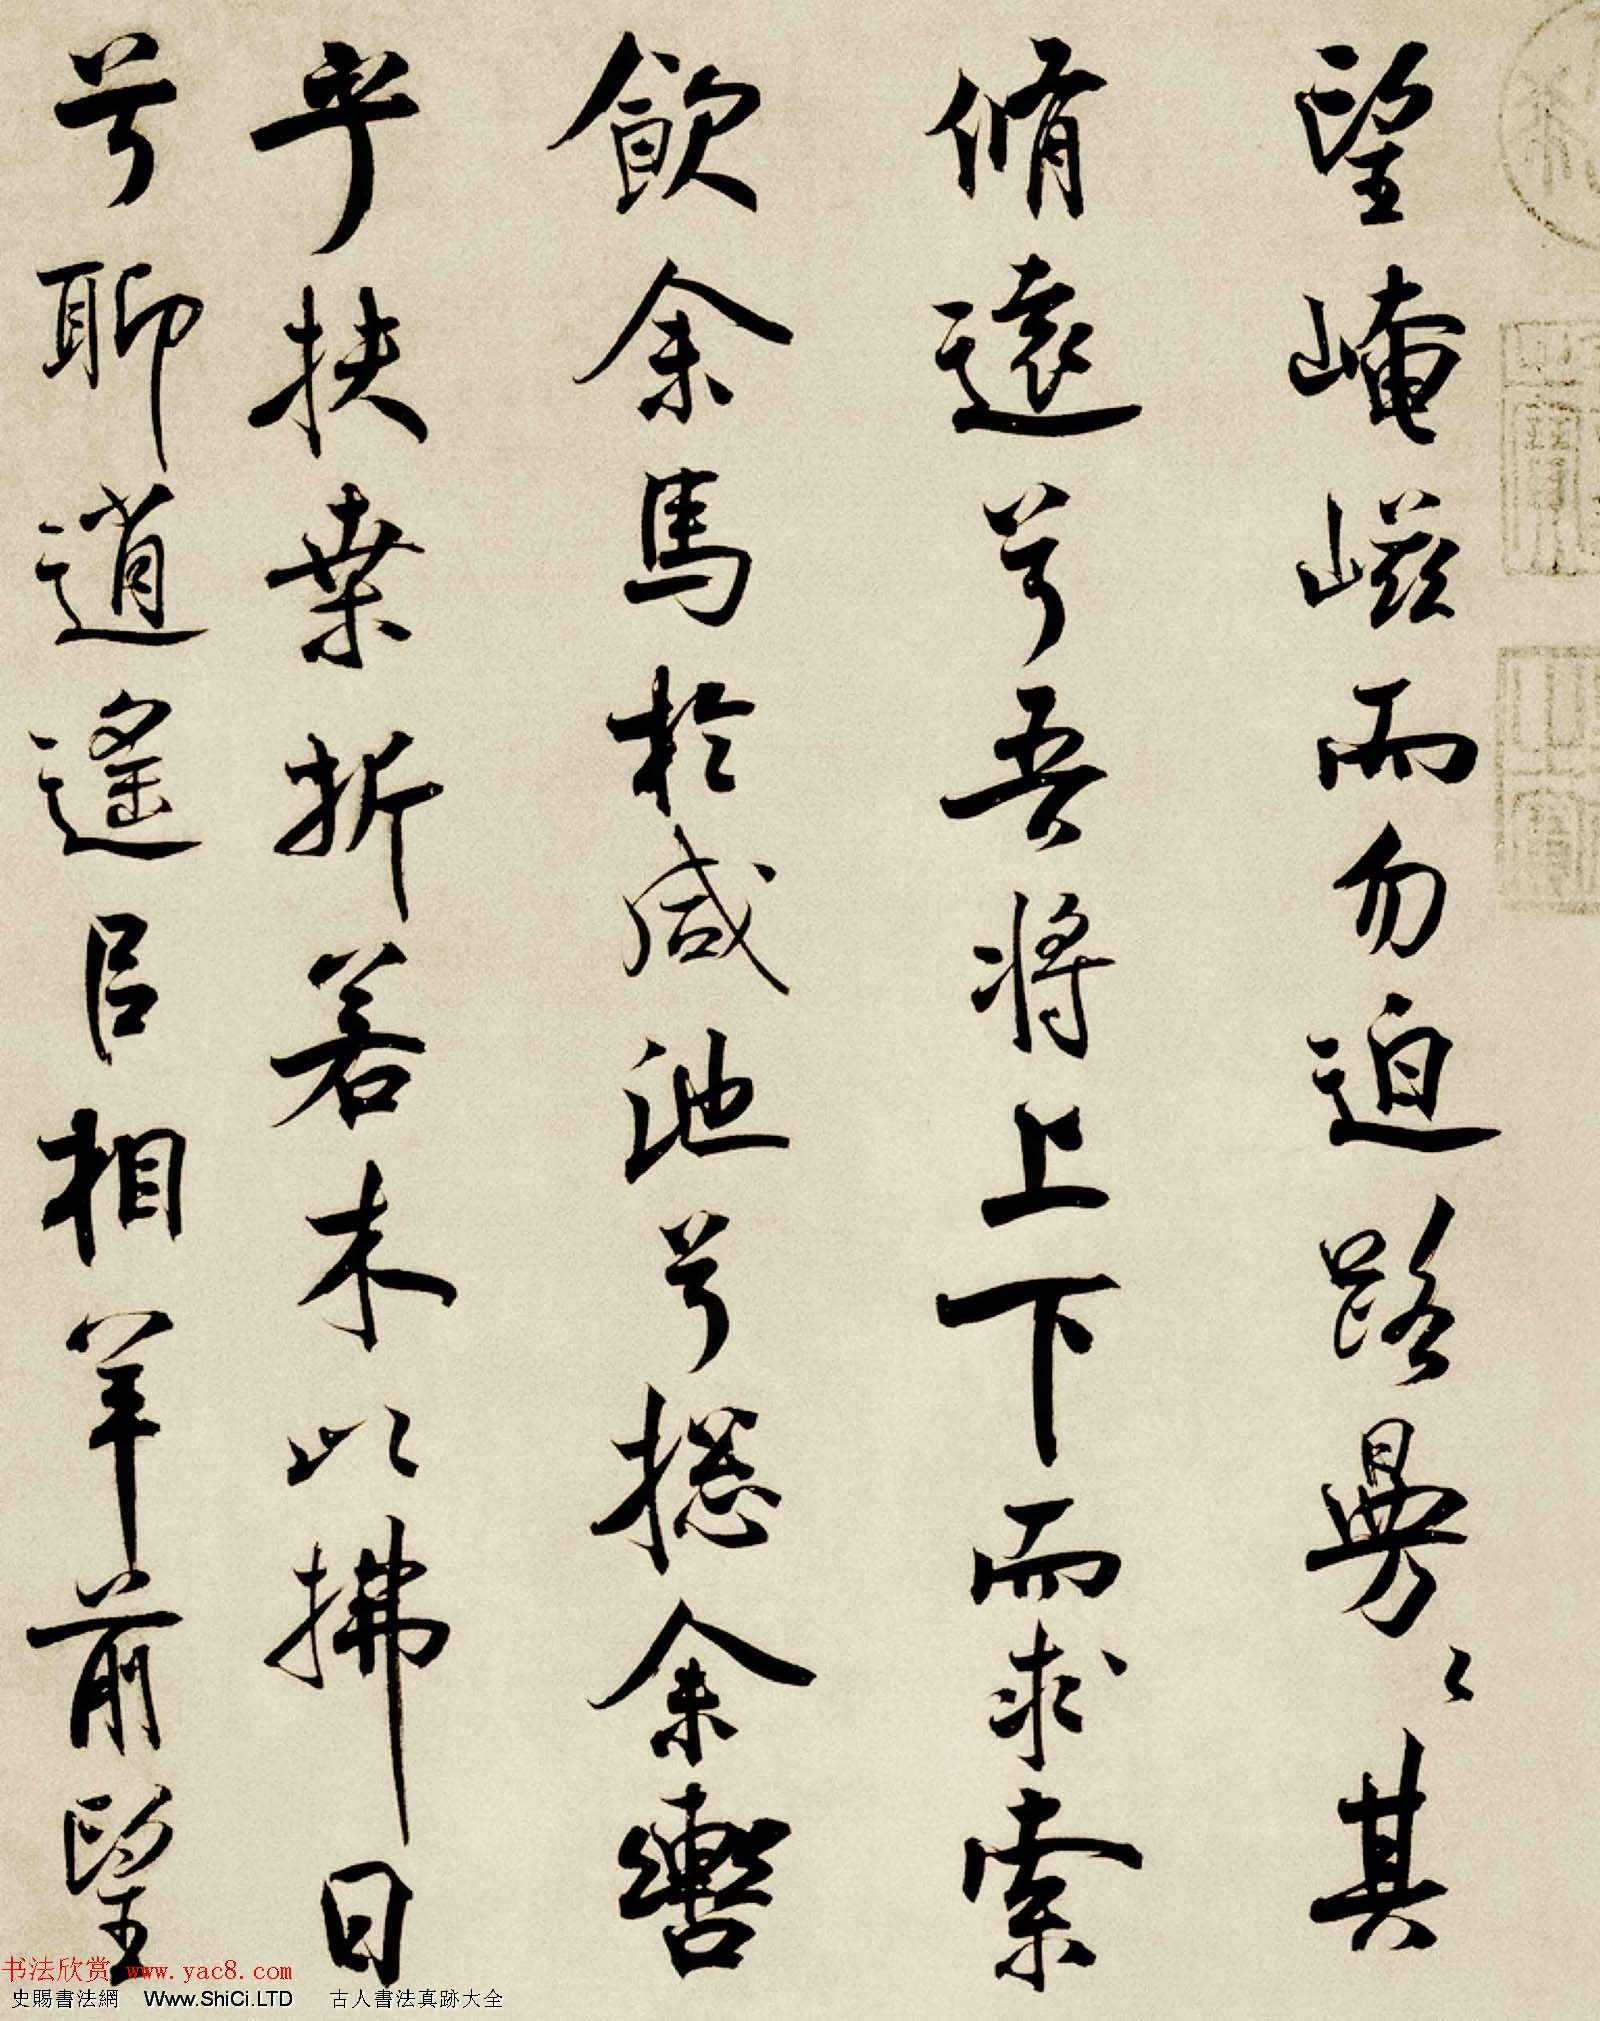 望崦嵫而勿迫路曼〻其
脩遠兮吾將上下而求索
飲余馬於咸池兮揔余轡
乎扶桒折若木以拂日
兮聊逍遙㠯相羊前望
书法欣赏 www.yac8.com
史賜書法網 Www.ShiCi.LTD 古人書法真跡大全